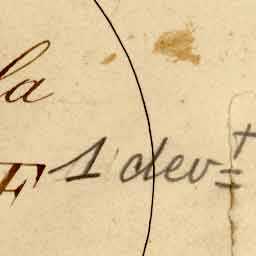 la
F 1 dev=